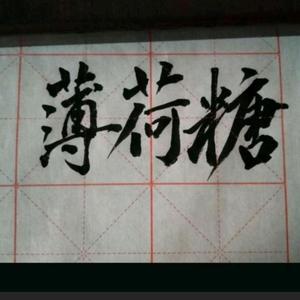 薄荷糖